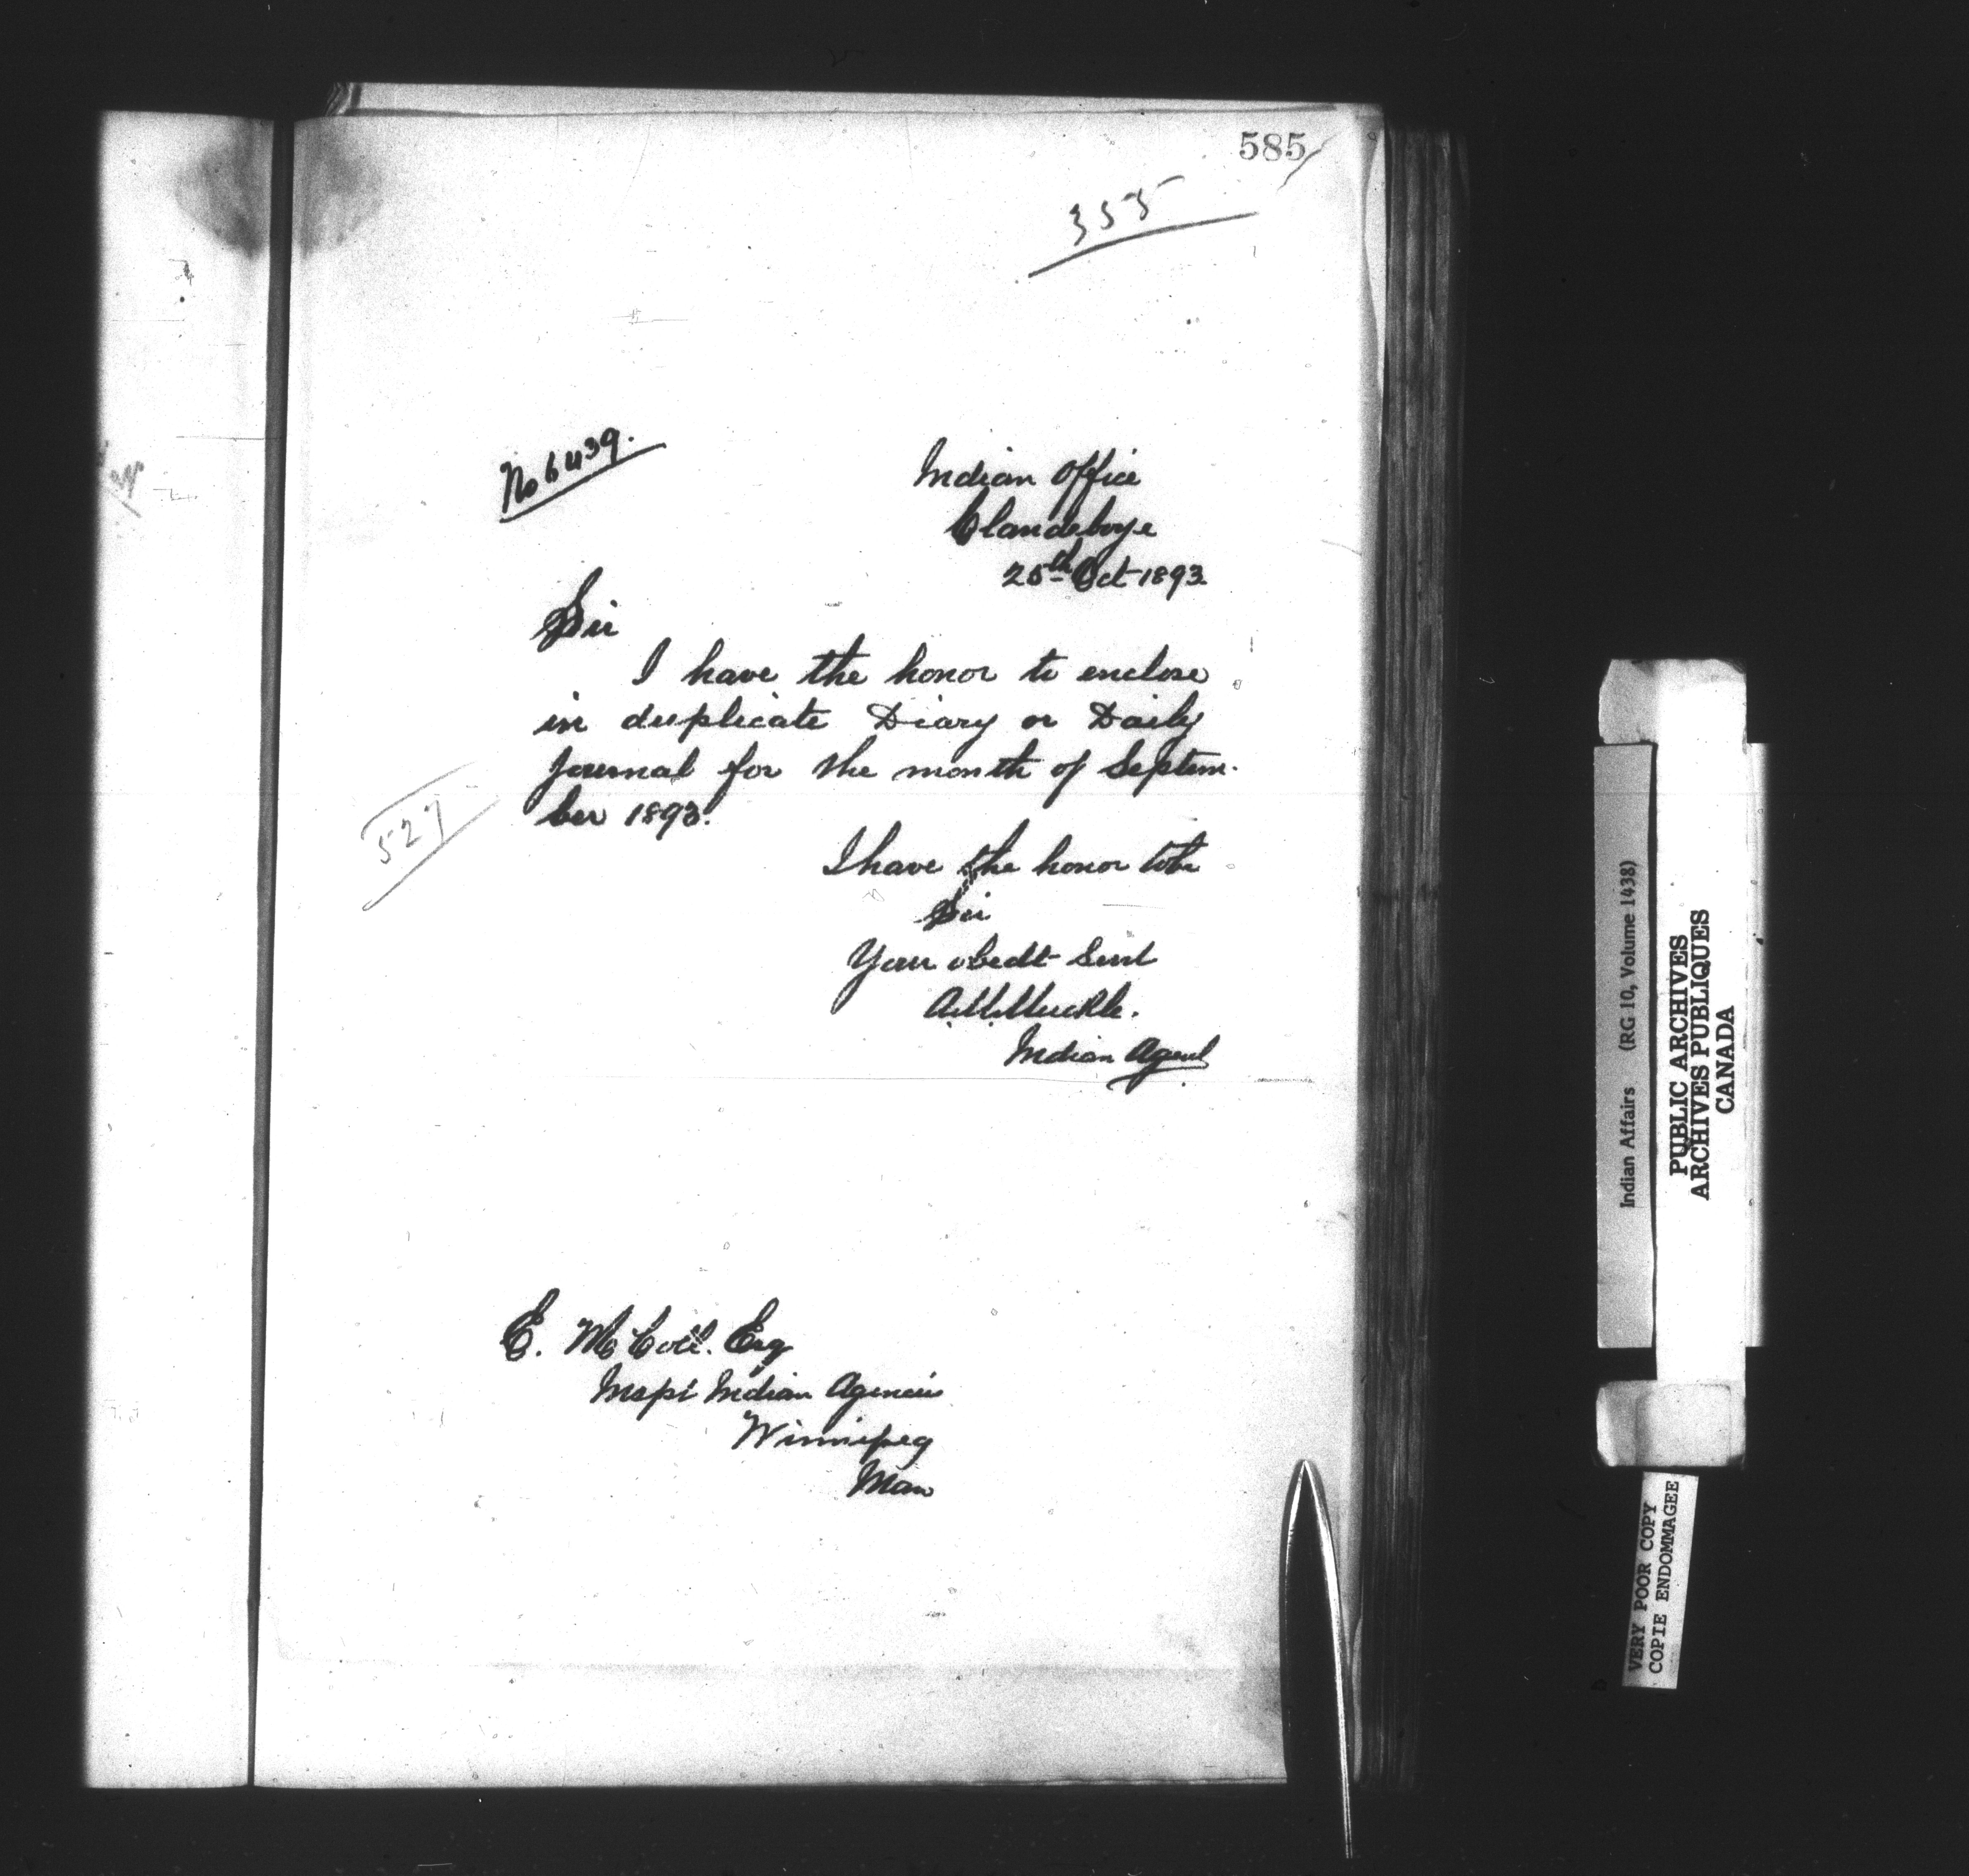 585
355
No 6439.
Indian Office
Clandeboye
25th Oct 1893
Sir
I have the honor to enclose
in duplicate Diary or Daily
Journal for the month of Septem-
ber 1893.
527
I have the honor to be
Sir
Your obedt Servt
A.M. Muckle.
Indian Agent
E. McColl. Esq
Inspt Indian Agencies
Winnipeg
Man
Indian Affairs (RG 10, Volume 1438)
PUBLIC ARCHIVES
ARCHIVES PUBLIQUES
CANADA
VERY POOR COPY
COPIE ENDOMMAGEE